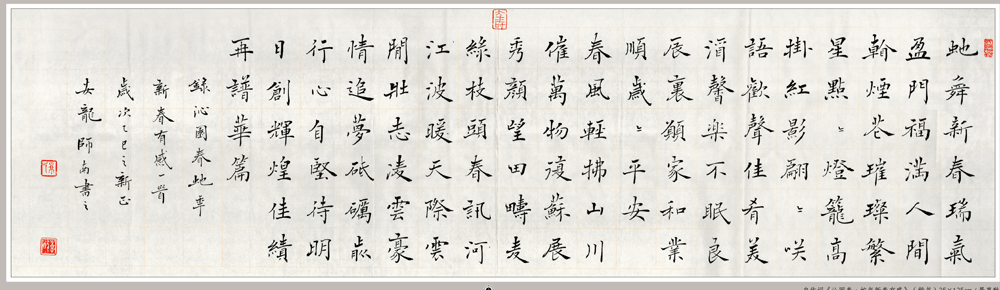 虵舞新春瑞氣
盈門福滿人間
煙花璀璨繁
星點〻燈籠高
掛紅影翩〻咲
語歡聲佳肴美
湑馨樂不眠良
辰裏願家和業
順歲〻平安
春風輕拂山川
催萬物復蘇展
秀顏望田疇麦
綠枝頭春訊河
江波暖天際雲
閒壯志凌雲豪
情追夢砥礪歬
行心自堅待明
日創輝煌佳績
再譜華篇
錄沁園春虵年
新春有感一首
歲次乙巳之新正
龍師南書之